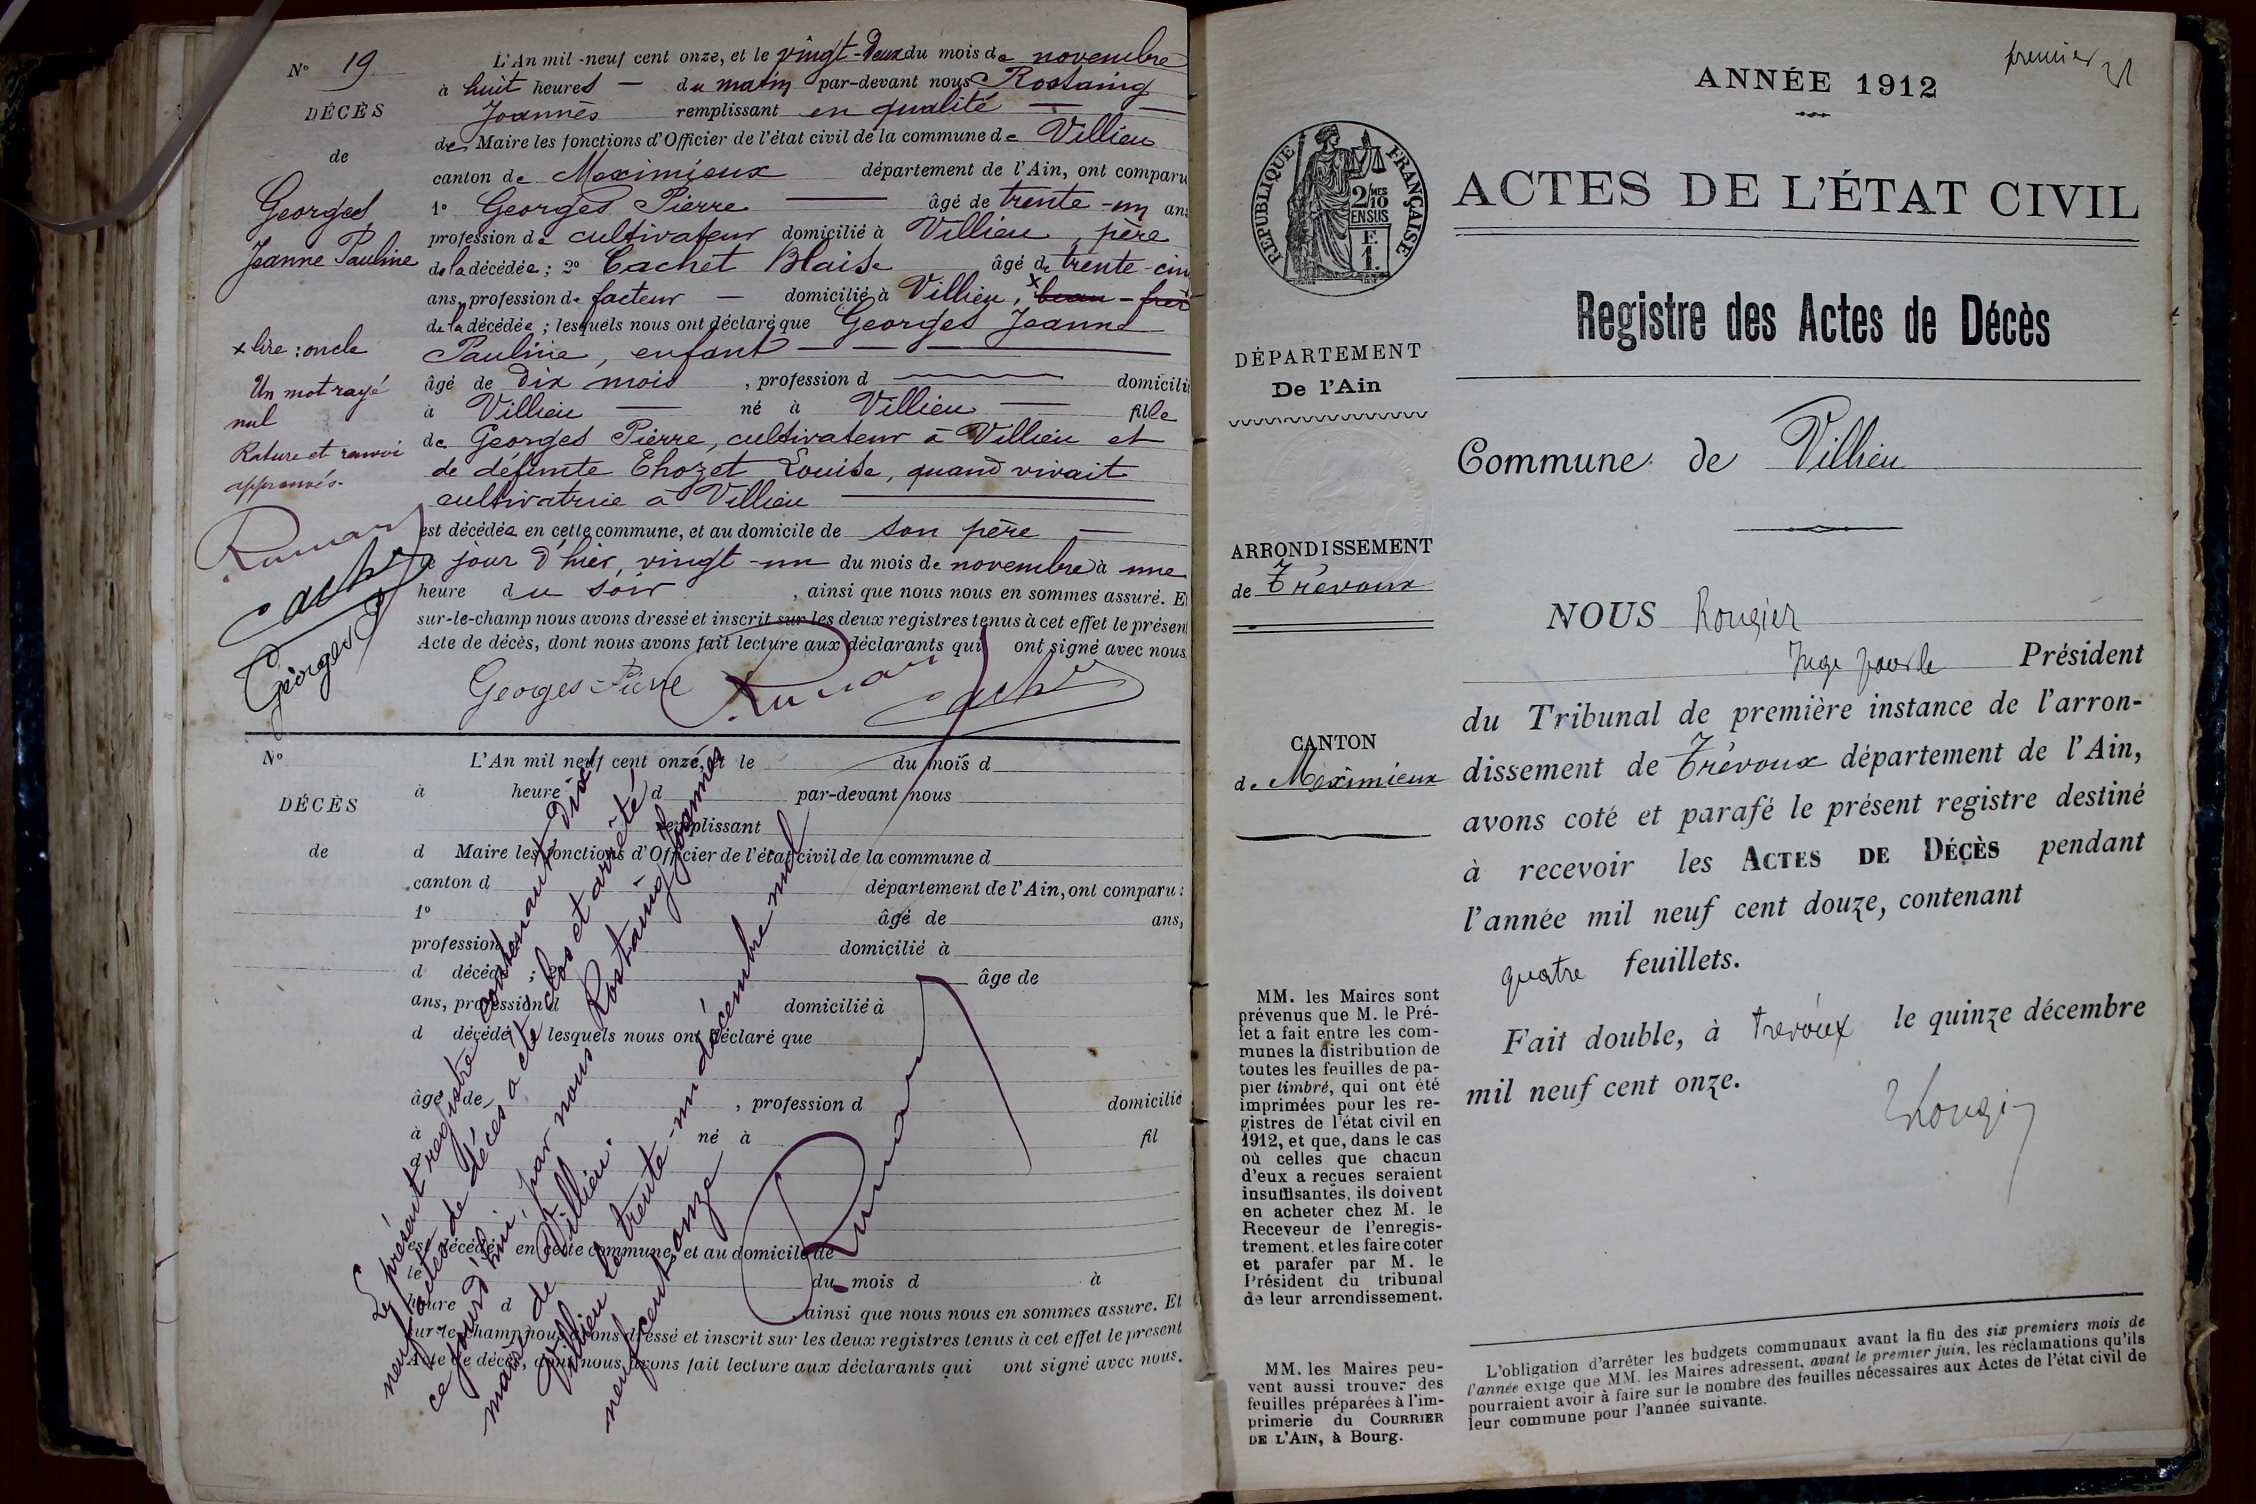 N° 19
DÉCÈS
de
Georges
Jeanne Pauline
x lire : oncle
Un mot rayé
nul
Rature et renvoi
approuvés.
Cachet
Georges
L'An mil-neuf cent onze, et le vingt-deux du mois de novembre
à huit heures — du matin par-devant nous Rostaing
Joannès remplissant en qualité — —
de Maire les fonctions d'Officier de l'état civil de la commune de Villieu
canton de Meximieux département de l'Ain, ont comparu
1° Georges Pierre — âgé de trente-un ans
profession de cultivateur domicilié à Villieu, père
de la décédée ; 2° Cachet Blaise âgé de trente-cin
ans, profession de facteur — domicilié à Villieu, x beau-frèr
de la décédée ; lesquels nous ont déclaré que Georges Jeanne
Pauline, enfant — — —
âgé de dix mois , profession d — domicili
à Villieu — né à Villieu — fille
de Georges Pierre, cultivateur à Villieu et
de défunte Thozet Louise, quand vivait
cultivatrice à Villieu —
est décédée en cette commune, et au domicile de son père —
le jour d'hier, vingt-un du mois de novembre à une
heure du soir , ainsi que nous nous en sommes assuré. E
sur-le-champ nous avons dressé et inscrit sur les deux registres tenus à cet effet le présen
Acte de décès, dont nous avons fait lecture aux déclarants qui ont signé avec nous
Georges Pierre Cachet
N°
DÉCÈS
de
L'An mil neuf cent onze, et le du mois d
à heure d par-devant nous
remplissant
d Maire les fonctions d'Officier de l'état civil de la commune d
canton d département de l'Ain, ont comparu :
1° âgé de ans,
profession domicilié à
d décédé ; âge de
ans, profession d domicilié à
d décédé lesquels nous ont déclaré que
âgé de , profession d domicilié
à né à fil
est décédé en cette commune, et au domicile de
le du mois d à
heure d ainsi que nous nous en sommes assuré. Et
sur-le-champ nous avons dressé et inscrit sur les deux registres tenus à cet effet le présent
Acte de décès, dont nous avons fait lecture aux déclarants qui ont signé avec nous.
Le présent registre contenant dix
neuf actes de décès a été clos et arrêté
ce jourd'hui, par nous Rostaing Joannès
maire de Villieu.
Villieu le trente-un décembre mil
neuf cent onze
premier
ANNÉE 1912
RÉPUBLIQUE FRANÇAISE
2/10 MES
EN SUS
F.
1.
ACTES DE L'ÉTAT CIVIL
Registre des Actes de Décès
DÉPARTEMENT
De l'Ain
Commune de Villieu
ARRONDISSEMENT
de Trévoux
CANTON
de Meximieux
NOUS Rougier
Juge pour le Président
du Tribunal de première instance de l'arron-
dissement de Trévoux département de l'Ain,
avons coté et parafé le présent registre destiné
à recevoir les ACTES DE DÉCÈS pendant
l'année mil neuf cent douze, contenant
quatre feuillets.
Fait double, à Trévoux le quinze décembre
mil neuf cent onze.
Rougier
MM. les Maires sont
prévenus que M. le Pré-
fet a fait entre les com-
munes la distribution de
toutes les feuilles de pa-
pier timbré, qui ont été
imprimées pour les re-
gistres de l'état civil en
1912, et que, dans le cas
où celles que chacun
d'eux a reçues seraient
insuffisantes, ils doivent
en acheter chez M. le
Receveur de l'enregis-
trement, et les faire coter
et parafer par M. le
Président du tribunal
de leur arrondissement.
MM. les Maires peu-
vent aussi trouver des
feuilles préparées à l'im-
primerie du COURRIER
DE L'AIN, à Bourg.
L'obligation d'arrêter les budgets communaux avant la fin des six premiers mois de
l'année exige que MM. les Maires adressent, avant le premier juin, les réclamations qu'ils
pourraient avoir à faire sur le nombre des feuilles nécessaires aux Actes de l'état civil de
leur commune pour l'année suivante.